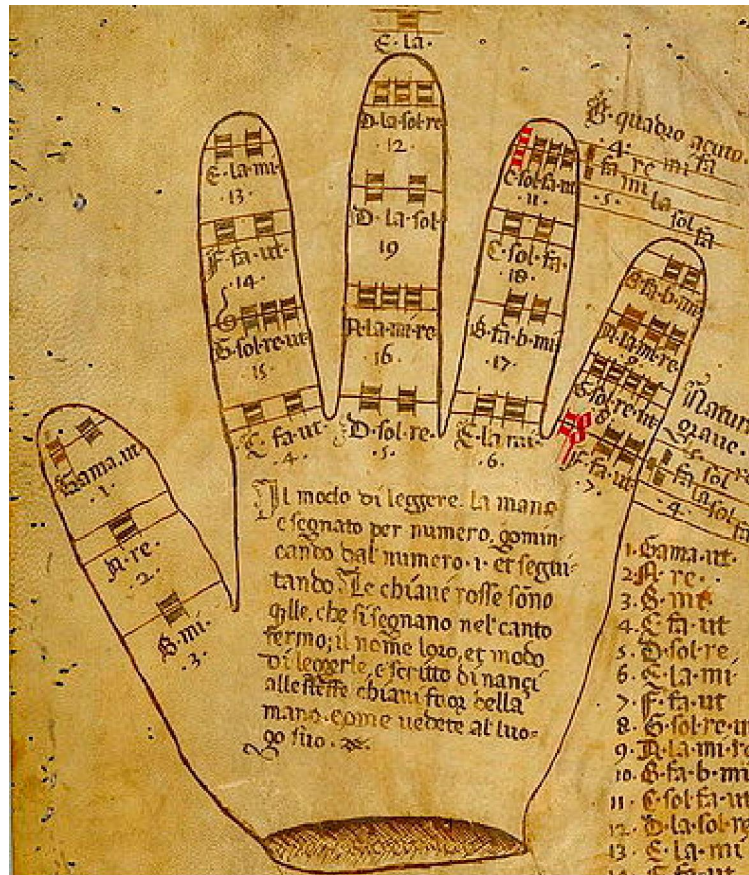 E·la·
D·la·sol·re
·12·
E·la·mi·
·13·
D·la·sol·
19
F·fa·ut·
·14·
A·la·mi·re·
·16·
G·sol·re·ut
·15·
D·sol·re·
·5·
C·fa·ut·
·4·
C·sol·fa·ut
·11·
C·sol·fa·
·18·
B·fa·b·mi
·17·
E·la·mi·
·6·
B·fa·b·mi
A·la·mi·re·
G·sol·re·ut
F·fa·ut
·7·
B·quadro acuto·
·4· re mi fa
fa mi la sol fa
·5·
Natura
grave·
fa sol
la sol fa
·4·
Gama·ut
·1·
A·re·
·2·
B·mi·
·3·
Il modo di leggere la mano
e segnato per numero, comin-
cando dal numero ·1· et segui-
tando. Le chiave rosse sono
qlle, che si segnano nel canto
fermo; il nome loro, et modo
di leggerle, e scritto dinanci
alle stesse chiavi fuor della
mano come vedete al luo-
go suo·
1·Gama·ut·
2·A·re·
3·B·mi·
4·C·fa·ut
5·D·sol·re·
6·E·la·mi·
7·F·fa·ut
8·G·sol·re·u
9·A·la·mi·re
10·B·fa·b·mi
11·C·sol·fa·ut
12·D·la·sol·re
13·E·la·mi